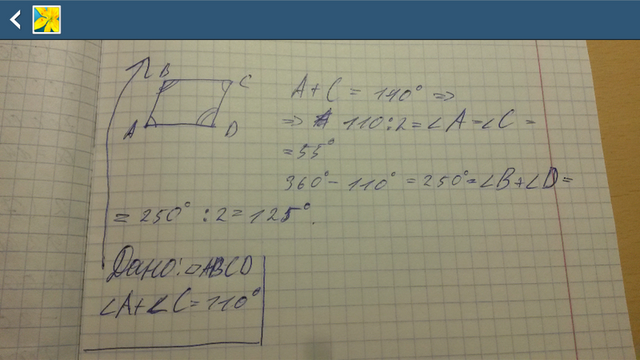 B C
A D
A + C = 110° =>
=> 110 : 2 = ∠A = ∠C =
= 55°
360° - 110° = 250° = ∠B + ∠D =
= 250° : 2 = 125°.
Дано: ▱ABCD
∠A + ∠C = 110°